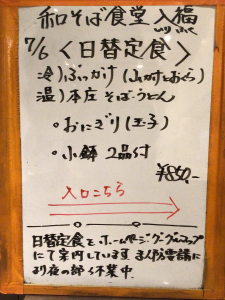 和そば食堂 入福
いりふく
7/6 〈日替定食〉
冷)ぶっかけ(山かけとおくら)
温)本庄そば・うどん
・おにぎり(玉子)
・小鉢 2品付
¥850.-
入口こちら
日替定食を、ホームページ・グーグルマップ
にて案内しています。まん防要請に
より夜の部 休業中.